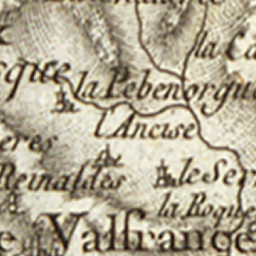 la Ca
sque la Pebenorgue
l'Ancise
eres
Reinaldès le Ser
la Roque
e Valfrange